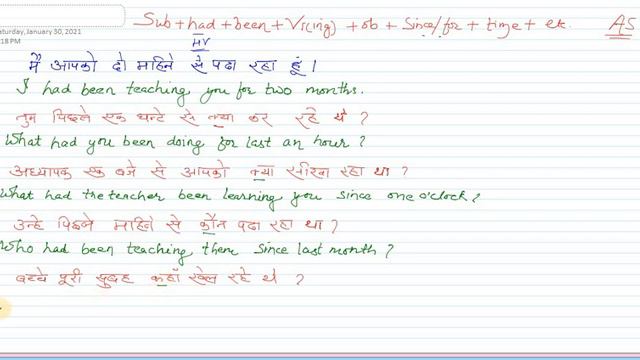 aturday, January 30, 2021
:18 PM
Sub + had + been + V1(ing) + ob + Since/for + time + etc. AS
HV
मैं आपको दो महिने से पढा रहा हूं ।
I had been teaching you for two months.
तुम पिछले एक घन्टे से क्या कर रहे थे ?
What had you been doing for last an hour?
अध्यापक एक बजे से आपको क्या सीखा रहा था ?
What had the teacher been learning you since one o'clock?
उन्हे पिछले माहिने से कौन पढा रहा था ?
Who had been teaching them since last month?
बच्चे पूरी सुबह कहाँ खेल रहे थे ?